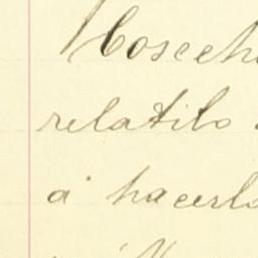 Cosech
relatilo
á hacerlo